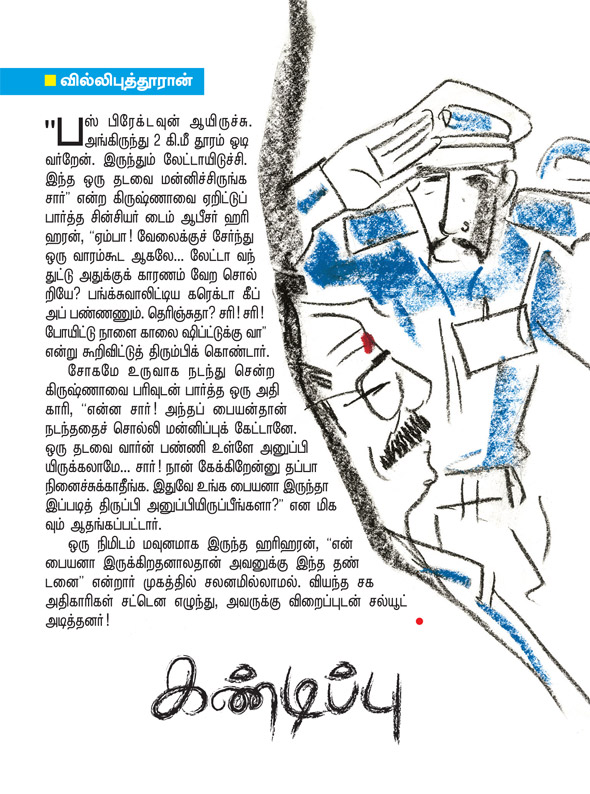 வில்லிபுத்தூரான்
"பஸ் பிரேக்டவுன் ஆயிருச்சு.
அங்கிருந்து 2 கி.மீ தூரம் ஓடி
வர்றேன். இருந்தும் லேட்டாயிடுச்சி.
இந்த ஒரு தடவை மன்னிச்சிருங்க
சார்" என்ற கிருஷ்ணாவை ஏறிட்டுப்
பார்த்த சின்சியர் டைம் ஆபீசர் ஹரி
ஹரன், "ஏம்பா! வேலைக்குச் சேர்ந்து
ஒரு வாரம்கூட ஆகலே... லேட்டா வந்
துட்டு அதுக்குக் காரணம் வேற சொல்
றியே? பங்க்சுவாலிட்டிய கரெக்டா கீப்
அப் பண்ணணும். தெரிஞ்சுதா? சரி! சரி!
போயிட்டு நாளை காலை ஷிப்ட்டுக்கு வா"
என்று கூறிவிட்டுத் திரும்பிக் கொண்டார்.
சோகமே உருவாக நடந்து சென்ற
கிருஷ்ணாவை பரிவுடன் பார்த்த ஒரு அதி
காரி, "என்ன சார்! அந்தப் பையன்தான்
நடந்ததைச் சொல்லி மன்னிப்புக் கேட்டானே.
ஒரு தடவை வார்ன் பண்ணி உள்ளே அனுப்பி
யிருக்கலாமே... சார்! நான் கேக்கிறேன்னு தப்பா
நினைச்சுக்காதீங்க. இதுவே உங்க பையனா இருந்தா
இப்படித் திருப்பி அனுப்பியிருப்பீங்களா?" என மிக
வும் ஆதங்கப்பட்டார்.
ஒரு நிமிடம் மவுனமாக இருந்த ஹரிஹரன், "என்
பையனா இருக்கிறதனாலதான் அவனுக்கு இந்த தண்
டனை" என்றார் முகத்தில் சலனமில்லாமல். வியந்த சக
அதிகாரிகள் சட்டென எழுந்து, அவருக்கு விறைப்புடன் சல்யூட்
அடித்தனர்!
கண்டிப்பு